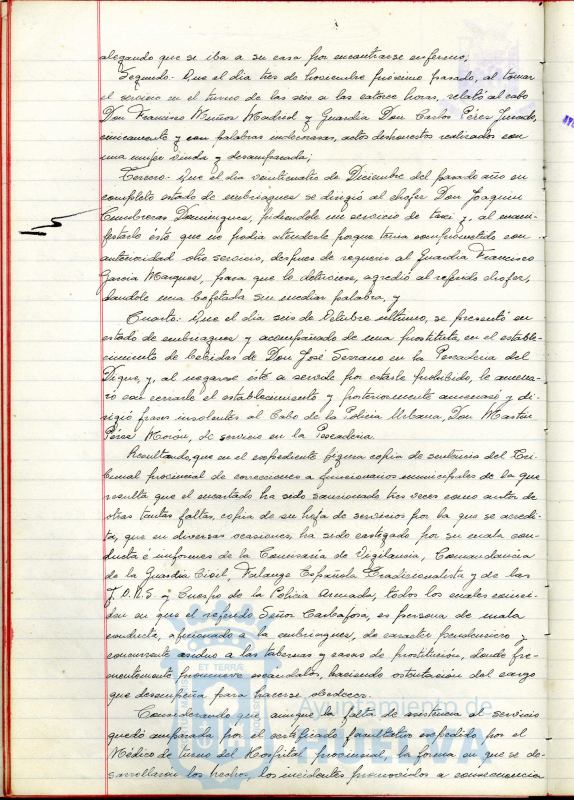 alegando que se iba a su casa por encontrarse enfermo;
Segundo.- Que el dia tres de noviembre próximo pasado, al tomar
el servicio en el turno de las seis a las catorce horas, relató al cabo
Don Francisco Muñoz Madrid y Guardia Don Carlos Pérez Jurado,
cinicamente y con palabras indecorosas, actos deshonestos realizados con
una mujer viuda y desamparada;
Tercero.- Que el dia veinticuatro de Diciembre del pasado año en
completo estado de embriaguez se dirigió al chofer Don Joaquin
Cumbreras Dominguez, pidiendole un servicio de taxi y, al mani-
festarle éste que no podia atenderle porque tenia comprometido con
anterioridad otro servicio, despues de requerir al Guardia Francisco
Garcia Marquez, para que lo detuviese, agredió al referido chofer,
dandole una bofetada sin mediar palabra, y
Cuarto.- Que el dia seis de Octubre ultimo, se presentó en
estado de embriaguez y acompañado de una prostituta, en el estable-
cimiento de bebidas de Don José Serrano en la Pescaderia del
Dique, y, al negarse éste a servirle por estarle prohibido, le amena-
zó con cerrarle el establecimiento y posteriormente amenazó y di-
rigió frases insolentes al Cabo de la Policia Urbana, Don Martin
Pérez Morón, de servicio en la Pescaderia.
Resultando, que en el expediente figura copia de sentencia del Tri-
bunal provincial de correcciones a funcionarios municipales de la que
resulta que el encartado ha sido sancionado tres veces como autor de
otras tantas faltas, copia de su hoja de servicios por la que se acredi-
ta, que en diversas ocasiones, ha sido castigado por su mala con-
ducta é informes de la Comisaria de Vigilancia, Comandancia
de la Guardia Civil, Falange Española Tradicionalista y de las
J.O.N.S. y Cuerpo de la Policia Armada, todos los cuales coinci-
den en que el referido Señor Carbajosa, es persona de mala
conducta, aficionado a la embriaguez, de caracter pendenciero y
concurrente asiduo a las tabernas y casas de prostitución, donde fre-
cuentemente promueve escandalos, haciendo ostentación del cargo
que desempeña para hacerse obedecer.
Considerando que aunque la falta de asistencia al servicio
quedó amparada por el certificado facultativo expedido por el
Médico de turno del Hospital provincial, la forma en que se de-
sarrollaron los hechos, los incidentes promovidos a consecuencia
ET TERRÆ
Ayuntamiento de
HUELVA